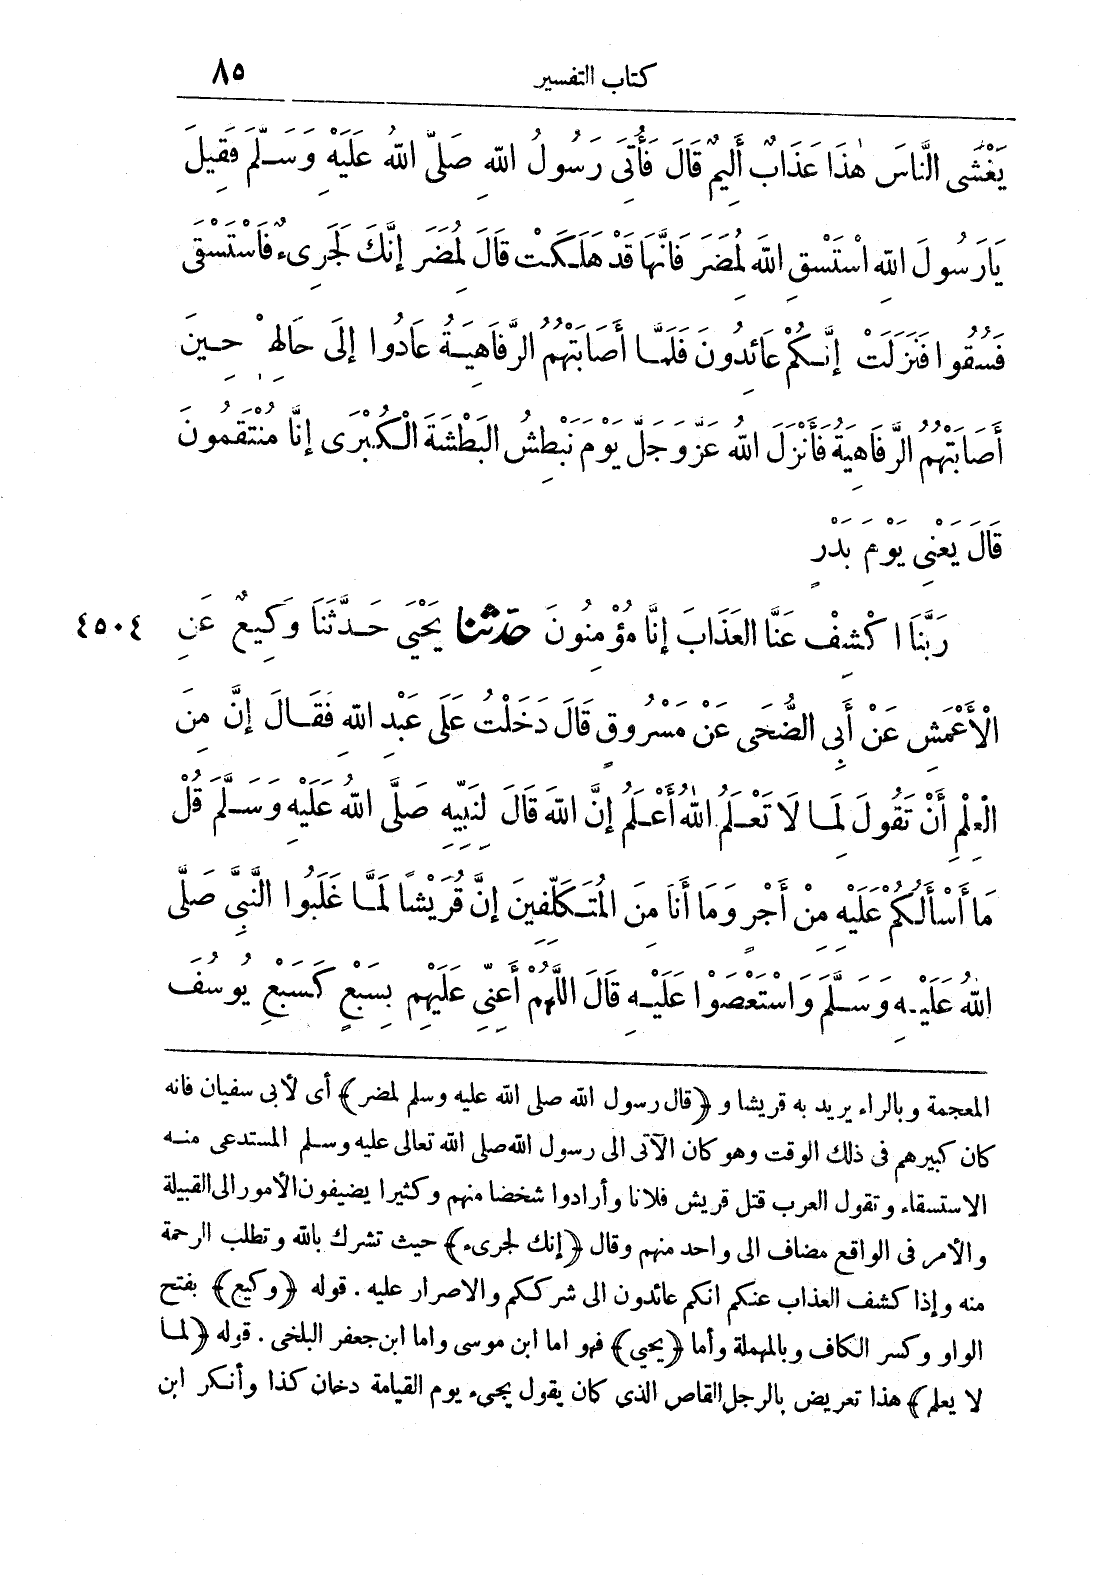 كتاب التفسير ٨٥
يَغْشَى النَّاسَ هٰذَا عَذَابٌ أَلِيمٌ قَالَ فَأُتِىَ رَسُولُ اللهِ صَلَّى اللهُ عَلَيْهِ وَسَلَّمَ فَقِيلَ
يَارَسُولَ اللهِ اسْتَسْقِ اللهَ لِمُضَرَ فَانَّهَا قَدْ هَلَكَتْ قَالَ لِمُضَرَ إِنَّكَ لَجَرِىءٌ فَاسْتَسْقَى
فَسُقُوا فَنَزَلَتْ إِنَّكُمْ عَائِدُونَ فَلَمَّا أَصَابَتْهُمُ الرَّفَاهِيَةُ عَادُوا إِلَى حَالِهِمْ حِينَ
أَصَابَتْهُمُ الرَّفَاهِيَةُ فَأَنْزَلَ اللهُ عَزَّوَجَلَّ يَوْمَ نَبْطِشُ البَطْشَةَ الْكُبْرَى إِنَّا مُنْتَقِمُونَ
قَالَ يَعْنِى يَوْمَ بَدْرٍ
رَبَّنَا اكْشِفْ عَنَّا العَذَابَ إِنَّا مُؤْمِنُونَ حَدَّثَنَا يَحْيَى حَدَّثَنَا وَكِيعٌ عَنِ ٤٥٠٤
الْأَعْمَشِ عَنْ أَبِى الضُّحَى عَنْ مَسْرُوقٍ قَالَ دَخَلْتُ عَلَى عَبْدِ اللهِ فَقَالَ إِنَّ مِنَ
الْعِلْمِ أَنْ تَقُولَ لِمَا لَا تَعْلَمُ اللهُ أَعْلَمُ إِنَّ اللهَ قَالَ لِنَبِيِّهِ صَلَّى اللهُ عَلَيْهِ وَسَلَّمَ قُلْ
مَا أَسْأَلُكُمْ عَلَيْهِ مِنْ أَجْرٍ وَمَا أَنَا مِنَ الْمُتَكَلِّفِينَ إِنَّ قُرَيْشًا لَمَّا غَلَبُوا النَّبِىَّ صَلَّى
اللهُ عَلَيْهِ وَسَلَّمَ وَاسْتَعْصَوْا عَلَيْهِ قَالَ اللَّهُمَّ أَعِنِّى عَلَيْهِمْ بِسَبْعٍ كَسَبْعِ يُوسُفَ
المعجمة وبالراء يريد به قريشا و ﴿قال رسول الله صلى الله عليه وسلم لمضر﴾ أى لأبى سفيان فانه
كان كبيرهم فى ذلك الوقت وهو كان الآتى الى رسول الله صلى الله تعالى عليه وسلم المستدعى منه
الاستسقاء وتقول العرب قتل قريش فلانا وأرادوا شخصا منهم وكثيرا يضيفون الأمور الى القبيلة
والأمر فى الواقع مضاف الى واحد منهم وقال ﴿إنك لجرىء﴾ حيث تشرك بالله وتطلب الرحمة
منه وإذا كشف العذاب عنكم انكم عائدون الى شرككم والاصرار عليه . قوله ﴿وكيع﴾ بفتح
الواو وكسر الكاف وبالمهملة وأما ﴿يحيى﴾ فهو اما ابن موسى واما ابن جعفر البلخى . قوله ﴿لما
لا يعلم﴾ هذا تعريض بالرجل القاص الذى كان يقول يجىء يوم القيامة دخان كذا وأنكر ابن